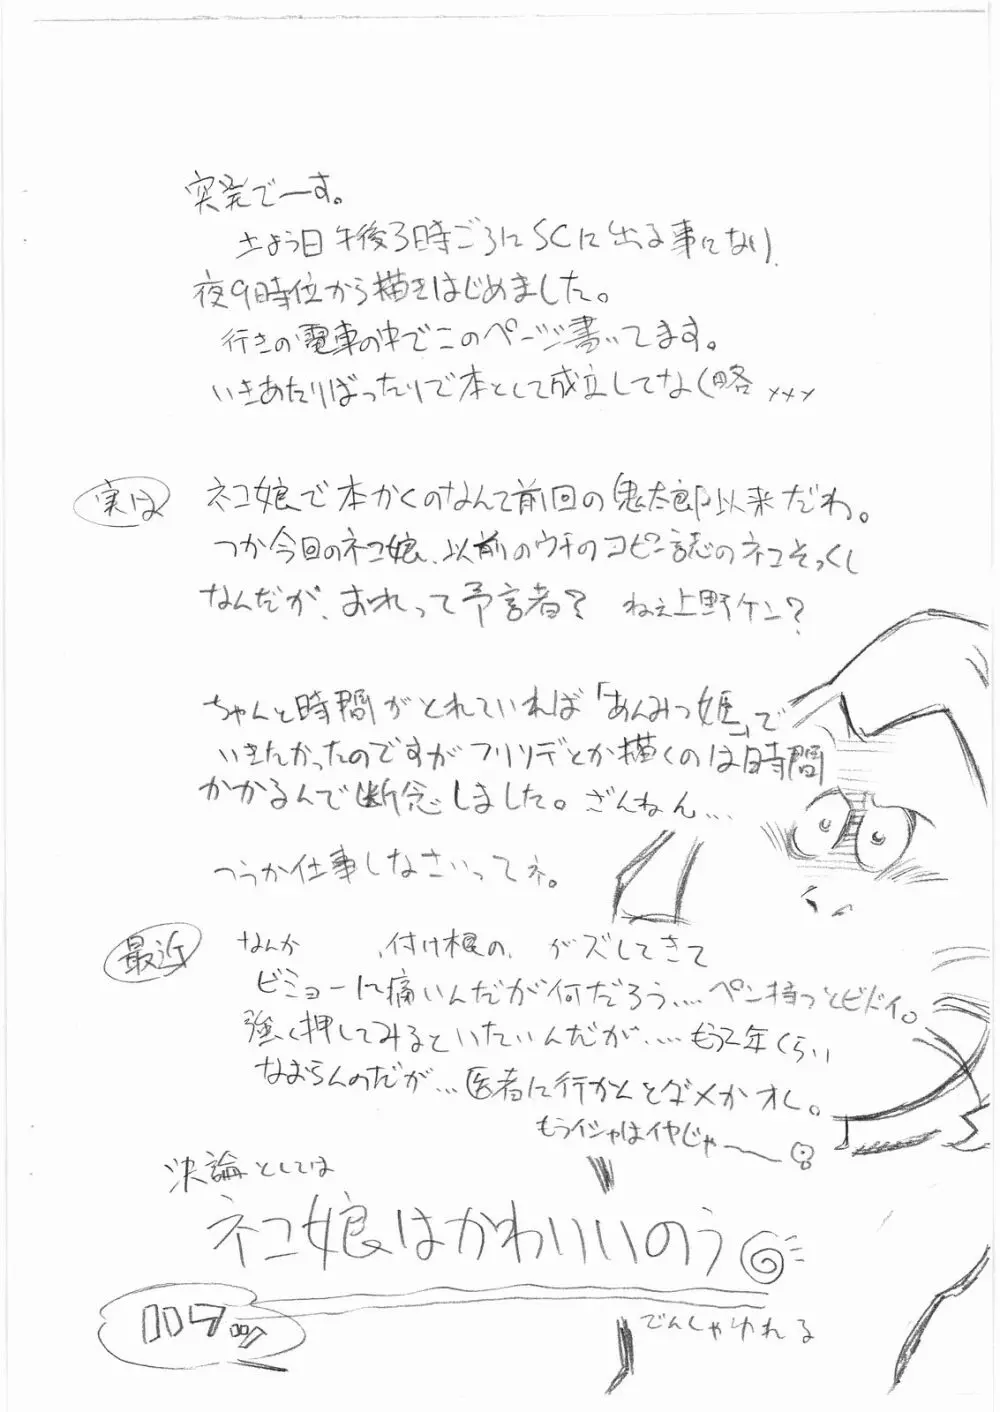 突発でーす。
土よう日午後3時ごろにSCに出る事になり、
夜9時位から描きはじめました。
行きの電車の中でこのページ書いてます。
いきあたりばったりで本として成立してなく(略 xxx
実は
ネコ娘で本かくのなんて前回の鬼太郎以来だわ。
つか今回のネコ娘、以前のウチのコピー誌のネコそっくし
なんだが、おれって予言者? ねぇ上野ケン?
ちゃんと時間がとれていれば「あんみつ姫」で
いきたかったのですがフリソデとか描くのは時間
かかるんで断念しました。ざんねん...
つうか仕事しなさいってネ。
最近
なんか 、付け根の、 がズしてきて
ビミョーに痛いんだが何だろう....ペン持つとヒドイ。
強く押してみるといたいんだが.....もう2年くらい
なおらんのだが...医者に行かんとダメかオレ。
もうイシャはイヤじゃ〜
決論としては
ネコ娘はかわいいのう
でんしゃゆれる